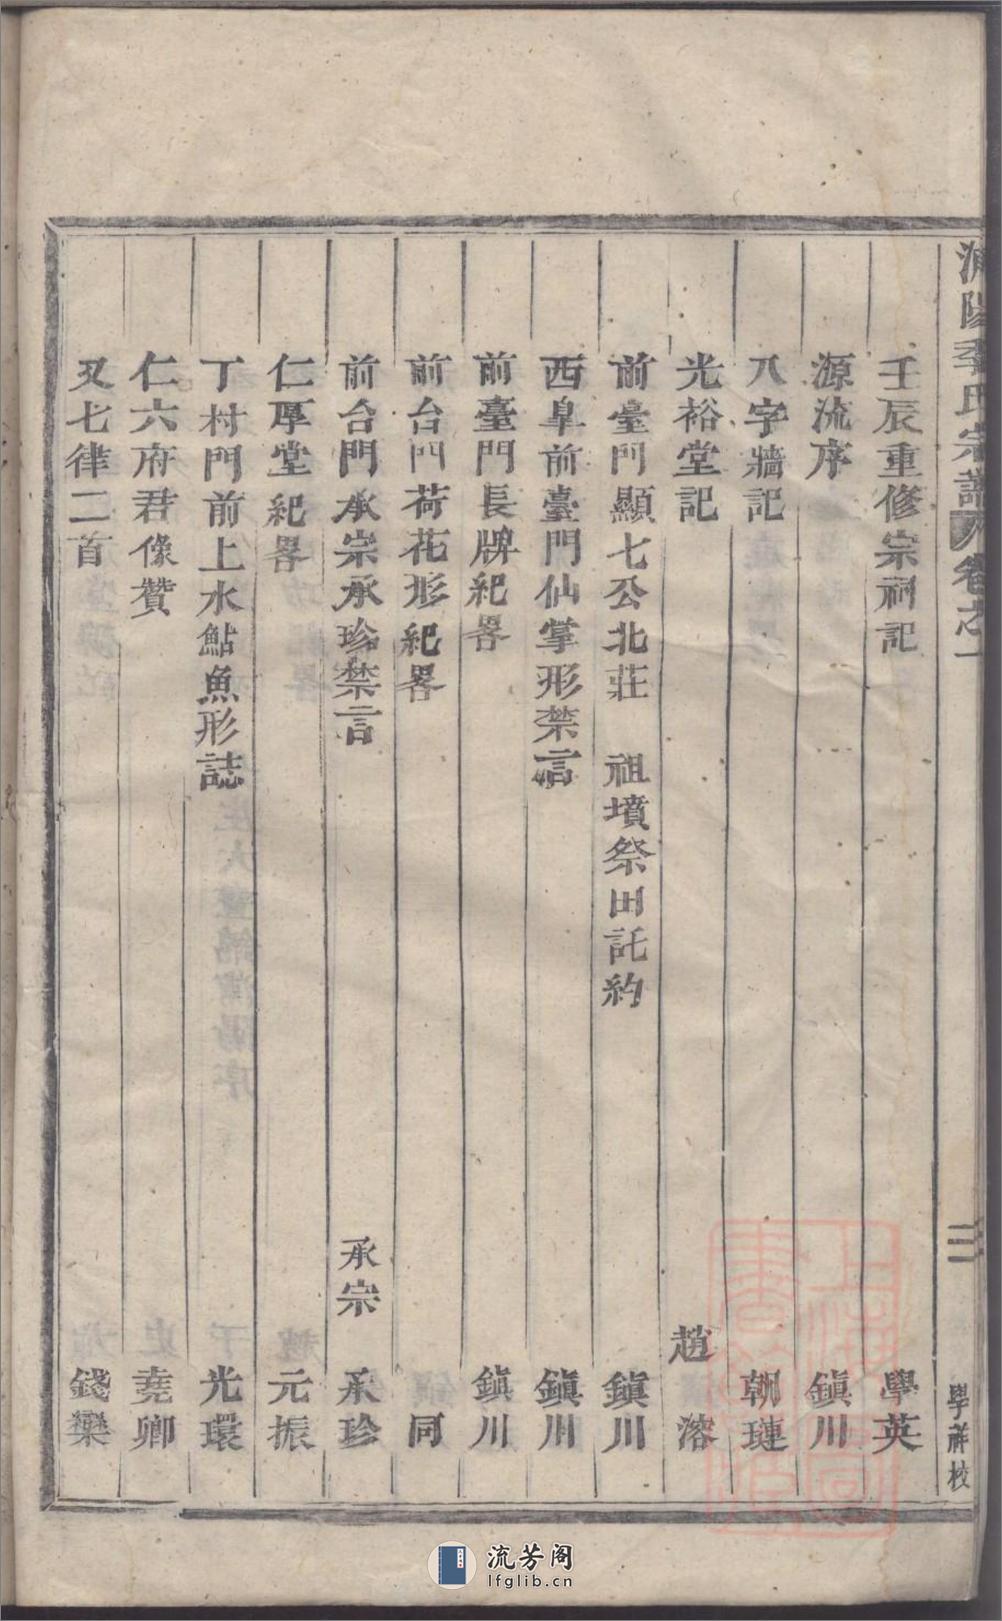 浦陽季氏宗譜 卷之一
三
學祥校
壬辰重修宗祠記 學英
源流序 鎭川
八字牆記 朝璉
光裕堂記 趙溶
前臺門顯七公北莊 祖墳祭田託約 鎭川
西阜前臺門仙掌形禁言 鎭川
前臺門長牌紀畧 鎭川
前台門荷花形紀畧 同
前台門承宗承珍禁言 承宗 承珍
仁厚堂紀畧 元振
丁村門前上水鮎魚形誌 光環
仁六府君像贊 堯卿
又七律二首 錢樂
上海圖書館藏
流芳阁
lfglib.cn